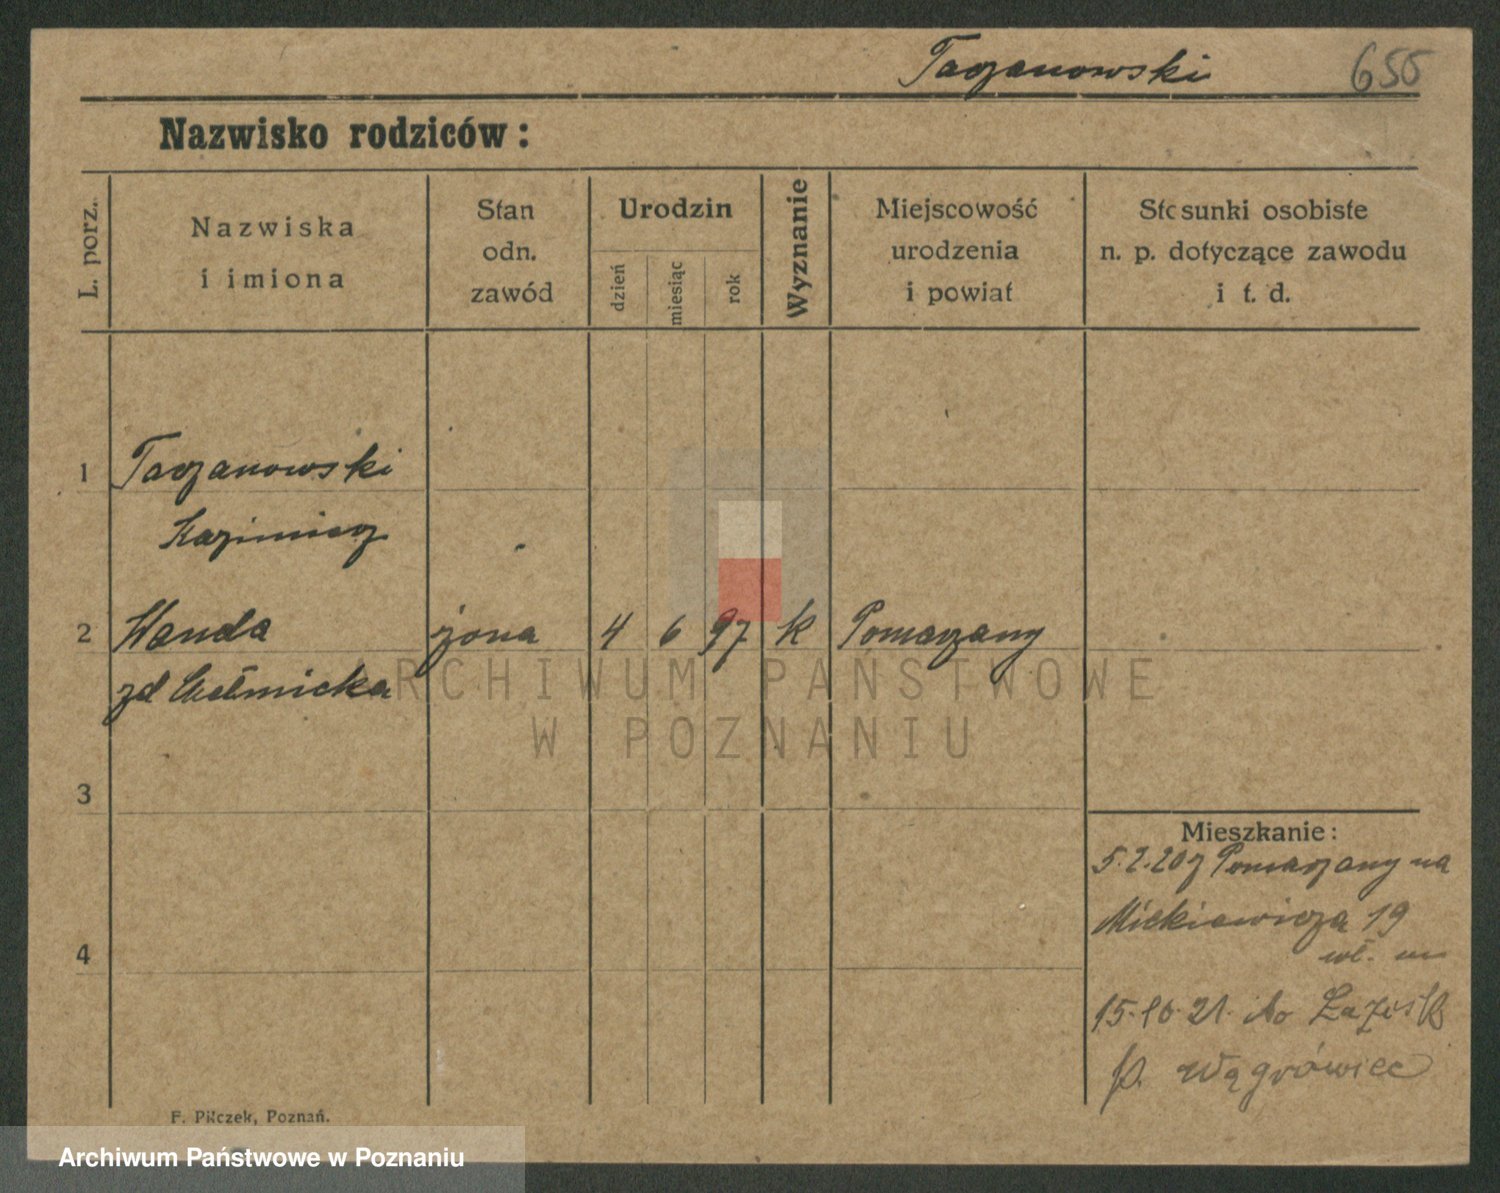 Taczanowski 655
Nazwisko rodziców:
L. porz.
Nazwiska
i imiona
Stan
odn.
zawód
Urodzin
dzień
miesiąc
rok
Wyznanie
Miejscowość
urodzenia
i powiat
Stosunki osobiste
n. p. dotyczące zawodu
i t. d.
1 Taczanowski
Kazimierz
2 Wanda żona 4 6 97 k Pomarzany
zd Chełmicka
3
4
Mieszkanie:
5.2.20 z Pomarzany na
Mickiewicza 19
wł. m
15.10.21. do Łazisk
p. Wągrówiec
F. Pilczek, Poznań.
ARCHIWUM PAŃSTWOWE
W POZNANIU
Archiwum Państwowe w Poznaniu